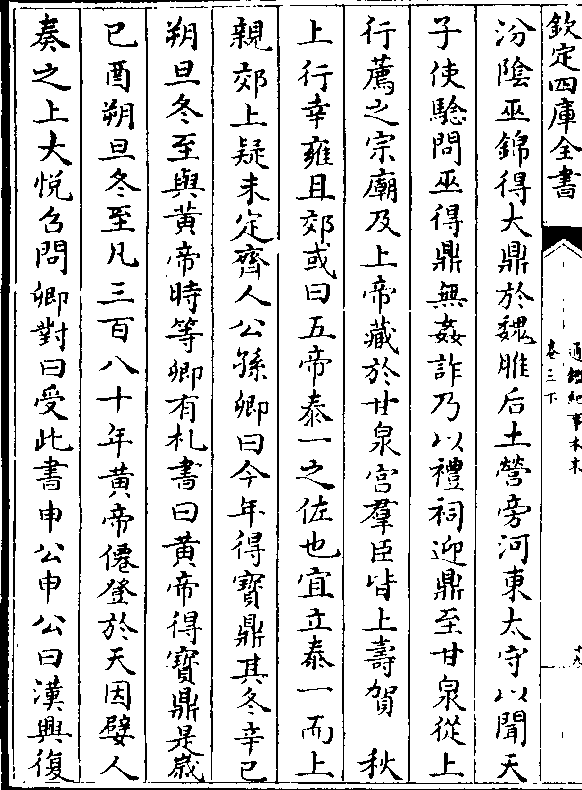 欽定四庫全書
通鑑紀事本末
卷三下
汾陰巫錦得大鼎於魏脽后土營旁河東太守以聞天
子使驗問巫得鼎無姦詐乃以禮祠迎鼎至甘泉從上
行薦之宗廟及上帝藏於甘泉宮羣臣皆上壽賀　秋
上行幸雍且郊或曰五帝泰一之佐也宜立泰一而上
親郊上疑未定齊人公孫卿曰今年得寶鼎其冬辛巳
朔旦冬至與黃帝時等卿有札書曰黃帝得寶鼎是歳
已酉朔旦冬至凡三百八十年黃帝僊登於天因嬖人
奏之上大悅召問卿對曰受此書申公申公曰漢興復